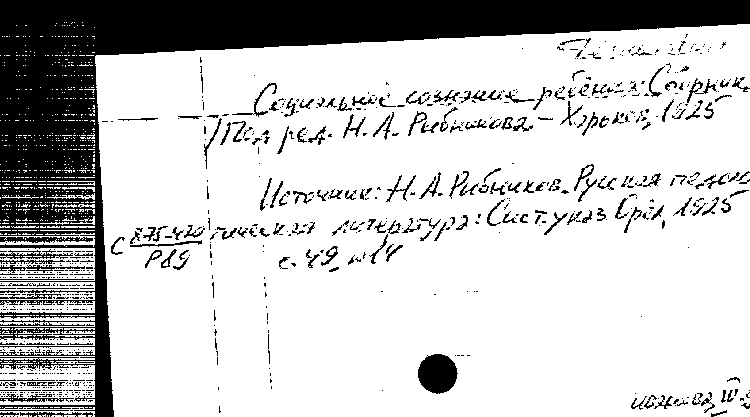 Социальное сознание ребёнка: Сборник
/Под ред. Н. А. Рыбникова. – Харьков, 1925
Источник: Н. А. Рыбников. Русская педоло
гическая литература: Сист. указ. Орёл, 1925
с. 49, № 14
С 875-420
Р89